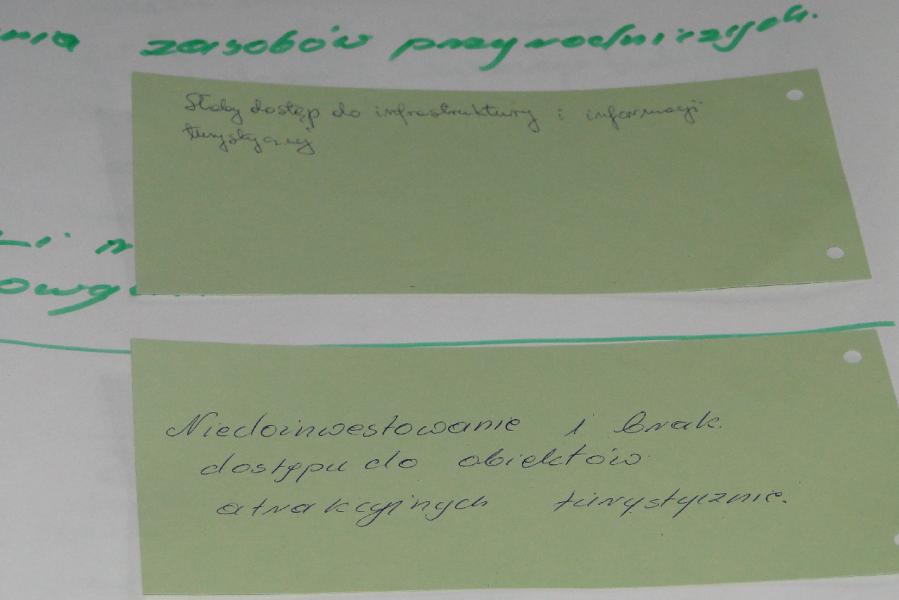 zasobów przyrodniczych.
Słaby dostęp do infrastruktury i informacji
turystycznej
Niedoinwestowanie i brak
dostępu do obiektów
atrakcyjnych turystycznie.